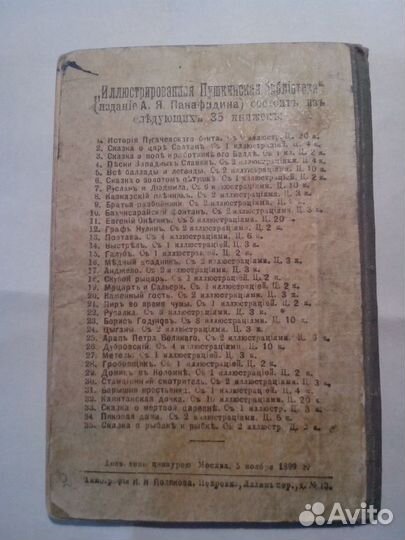 „Иллюстрированная Пушкинская библіотека“
(изданіе А. Я. Панафидина) состоитъ изъ
слѣдующихъ 35 книжекъ:
1. Исторія Пугачевскаго бунта. Съ иллюстр. Ц. 20 к.
2. Сказка о царѣ Салтанѣ. Съ 1 иллюстр. Ц. 4 к.
3. Сказка о попѣ и работникѣ его Балдѣ. Съ 1 ил. Ц. 2 к.
4. Пѣсни Западныхъ Славянъ. Съ 2 иллюстраціями. Ц. 4 к.
5. Всѣ баллады и легенды. Съ иллюстраціями. Ц. 10 к.
6. Сказка о золотомъ пѣтушкѣ. Съ 1 иллюстраціей. Ц. 2 к.
7. Русланъ и Людмила. Съ 6 иллюстраціями. Ц. 10 к.
8. Кавказскій плѣнникъ. Съ 2 иллюстраціями. Ц. 3 к.
9. Братья разбойники. Съ 2 иллюстраціями. Ц. к.
10. Бахчисарайскій фонтанъ. Съ 2 иллюстраціями. Ц. 3 к.
11. Евгеній Онѣгинъ. Съ 5 иллюстраціями. Ц. 20 к.
12. Графъ Нулинъ. Съ 2 иллюстраціями. Ц. 2 к.
13. Полтава. Съ 4 иллюстраціями. Ц. 6 к.
14. Выстрѣлъ. Съ 1 иллюстраціей. Ц. 3 к.
15. Галубъ. Съ 1 иллюстраціей. Ц. 2 к.
16. Мѣдный всадникъ. Съ 2 иллюстраціями. Ц. 3 к.
17. Анджело. Съ 2 иллюстраціями. Ц. 3 к.
18. Скупой рыцарь. Съ 1 иллюстраціей. Ц. 2 к.
19. Моцартъ и Сальери. Съ 1 иллюстраціей. Ц. 2 к.
20. Каменный гость. Съ 2 иллюстраціями. Ц. 3 к.
21. Пиръ во время чумы. Съ 1 иллюстраціей. Ц. 2 к.
22. Русалка. Съ 3 иллюстраціями. Ц. 3 к.
23. Борисъ Годуновъ. Съ 8 иллюстраціями. Ц. 10 к.
24. Цыганы. Съ 2 иллюстраціями. Ц. 3 к.
25. Арапъ Петра Великаго. Съ 2 иллюстраціями. Ц. 6 к.
26. Дубровскій. Съ 4 иллюстраціями. Ц. 10 к.
27. Метель. Съ 1 иллюстраціей. Ц. 3 к.
28. Гробовщикъ. Съ 1 иллюстраціей. Ц. 2 к.
29. Домикъ въ Коломнѣ. Съ 1 иллюстраціей. Ц. 2 к.
30. Станціонный смотритель. Съ 2 иллюстраціями. Ц. 3 к.
31. Барышня крестьянка. Съ 1 иллюстраціей. Ц. 4 к.
32. Капитанская дочка. Съ 10 иллюстраціями. Ц. 20 к.
33. Сказка о мертвой царевнѣ. Съ 1 иллюстр. Ц. 3 к.
34. Пиковая дама. Съ 2 иллюстраціями. Ц. 6 к.
35. Сказка о рыбакѣ и рыбкѣ. Съ 2 иллюстр. Ц. 3 к.
Дозволено цензурою Москва, 5 ноября 1899 г.
Типографія И. Я. Полякова. Петровка, пер., д. № 13.
Avito